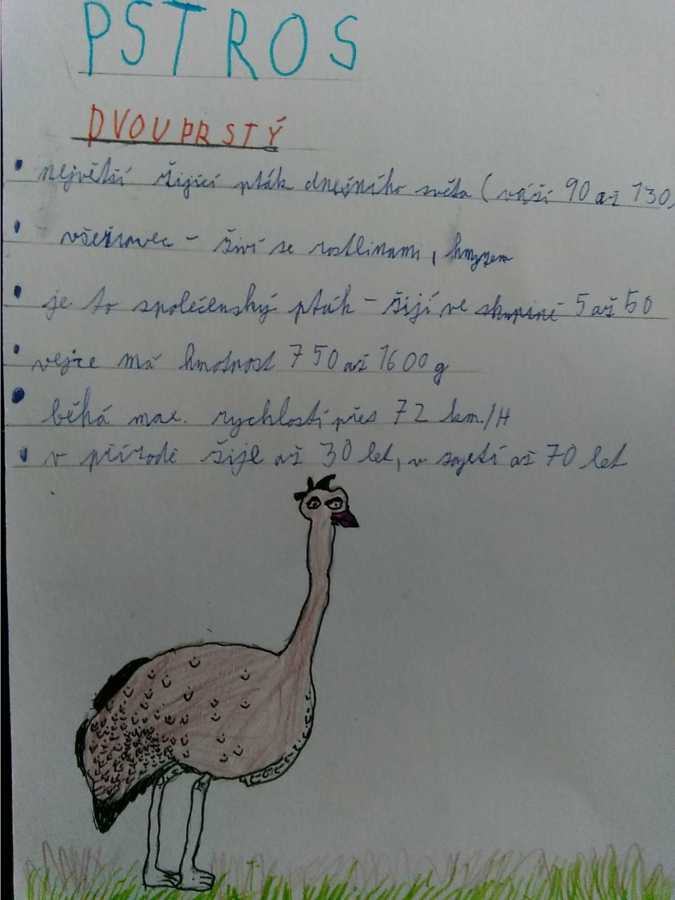 PSTROS
DVOUPRSTÝ
• největší žijící pták dnešního světa (váží 90 až 130
• všežravec - živí se rostlinami, hmyzem
• je to společenský pták - žijí ve skupině 5 až 50
• vejce má hmotnost 750 až 1600 g
• běhá max. rychlostí přes 72 km/H
• v přírodě žije až 30 let, v zajetí až 70 let